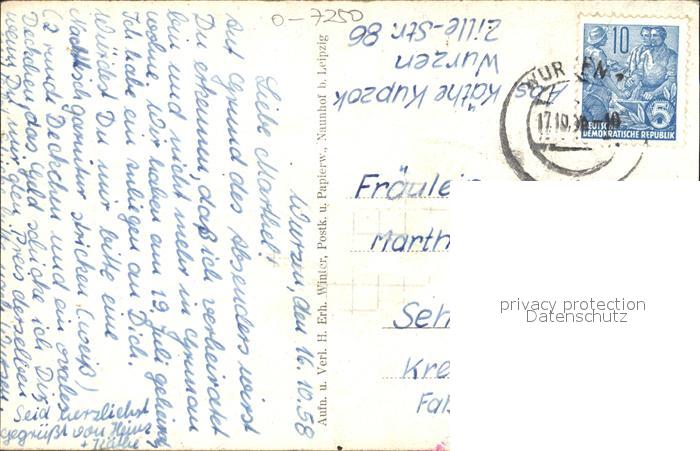 0-7250
Wurzen, den 16.10.58
Liebe Marthel!
Auf Grund des Absenders wirst
Du erkennen, daß ich verheiratet
bin und nicht mehr in Grimma
wohne. Wir haben am 19. Juli geheirat.
Ich habe ein Anliegen an Dich.
Würdest Du mir bitte eine
Nachttischgarnitur stricken (weiß)
(2 runde Deckchen und ein ovales
Deckchen das Geld schicke ich Dir,
wenn Du mir den Preis derselben
Seid herzlichst
gegrüßt von Heinz
+ Käthe
Aufn. u. Verl. H. Erh. Winter, Postk. u. Papierw., Naunhof b. Leipzig
Abs. Käthe Kupzok
Wurzen
Zille-Str. 86
10
5
DEUTSCHE
DEMOKRATISCHE REPUBLIK
Fräulein
Marth
Seh
Kre
Fal
privacy protection
Datenschutz